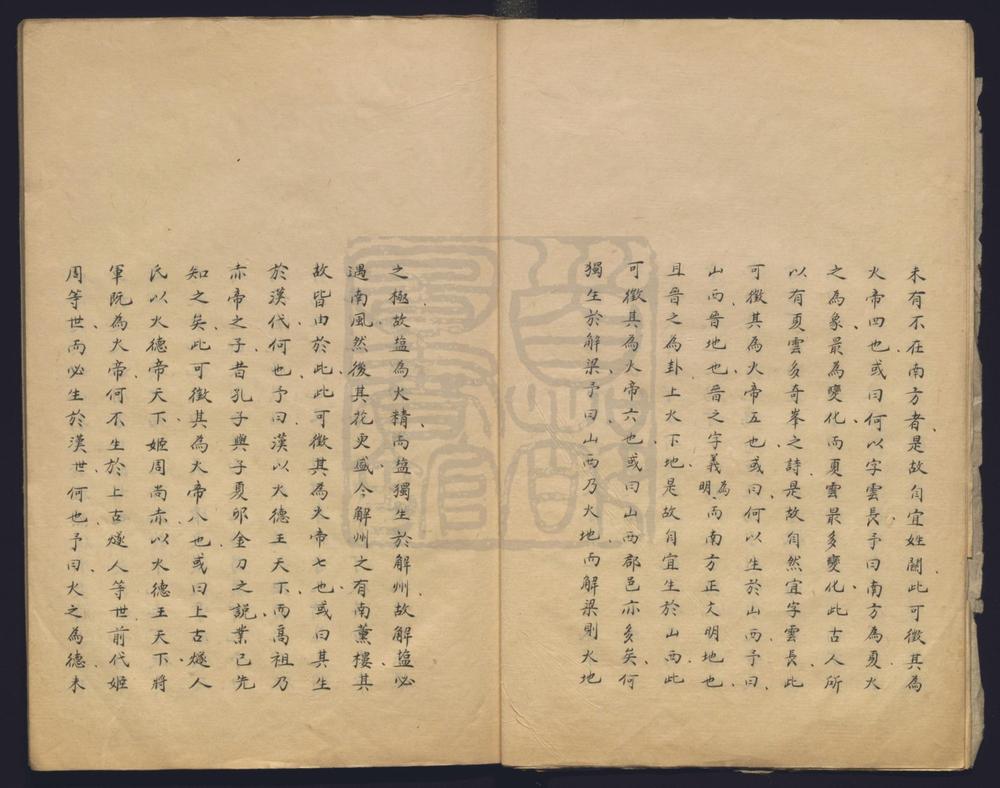 未有不在南方者是故自宜姓關此可徵其為
火帝四也或曰何以字雲長予曰南方為夏火
之為象最為變化而夏雲最多變化此古人所
以有夏雲多奇峯之詩是故自然宜字雲長此
可徵其為火帝五也或曰何以生於山西予曰
山西晉地也晉之字義為明而南方正文明地也
且晉之為卦上火下地是故自宜生於山西此
可徵其為火帝六也或曰山西郡邑亦多矣何
獨生於解梁予曰山西乃火地而解梁則火地
之極故塩為火精而塩獨生於解州故解塩必
遇南風然後其花更盛今解州之有南薰樓其
故皆由於此此可徵其為火帝七也或曰其生
於漢代何也予曰漢以火德王天下而高祖乃
赤帝之子昔孔子與子夏卯金刀之說業已先
知之矣此可徵其為火帝八也或曰上古燧人
氏以火德帝天下姬周尚赤以火德王天下將
軍既為火帝何不生於上古燧人等世前代姬
周等世而必生於漢世何也予曰火之為德未